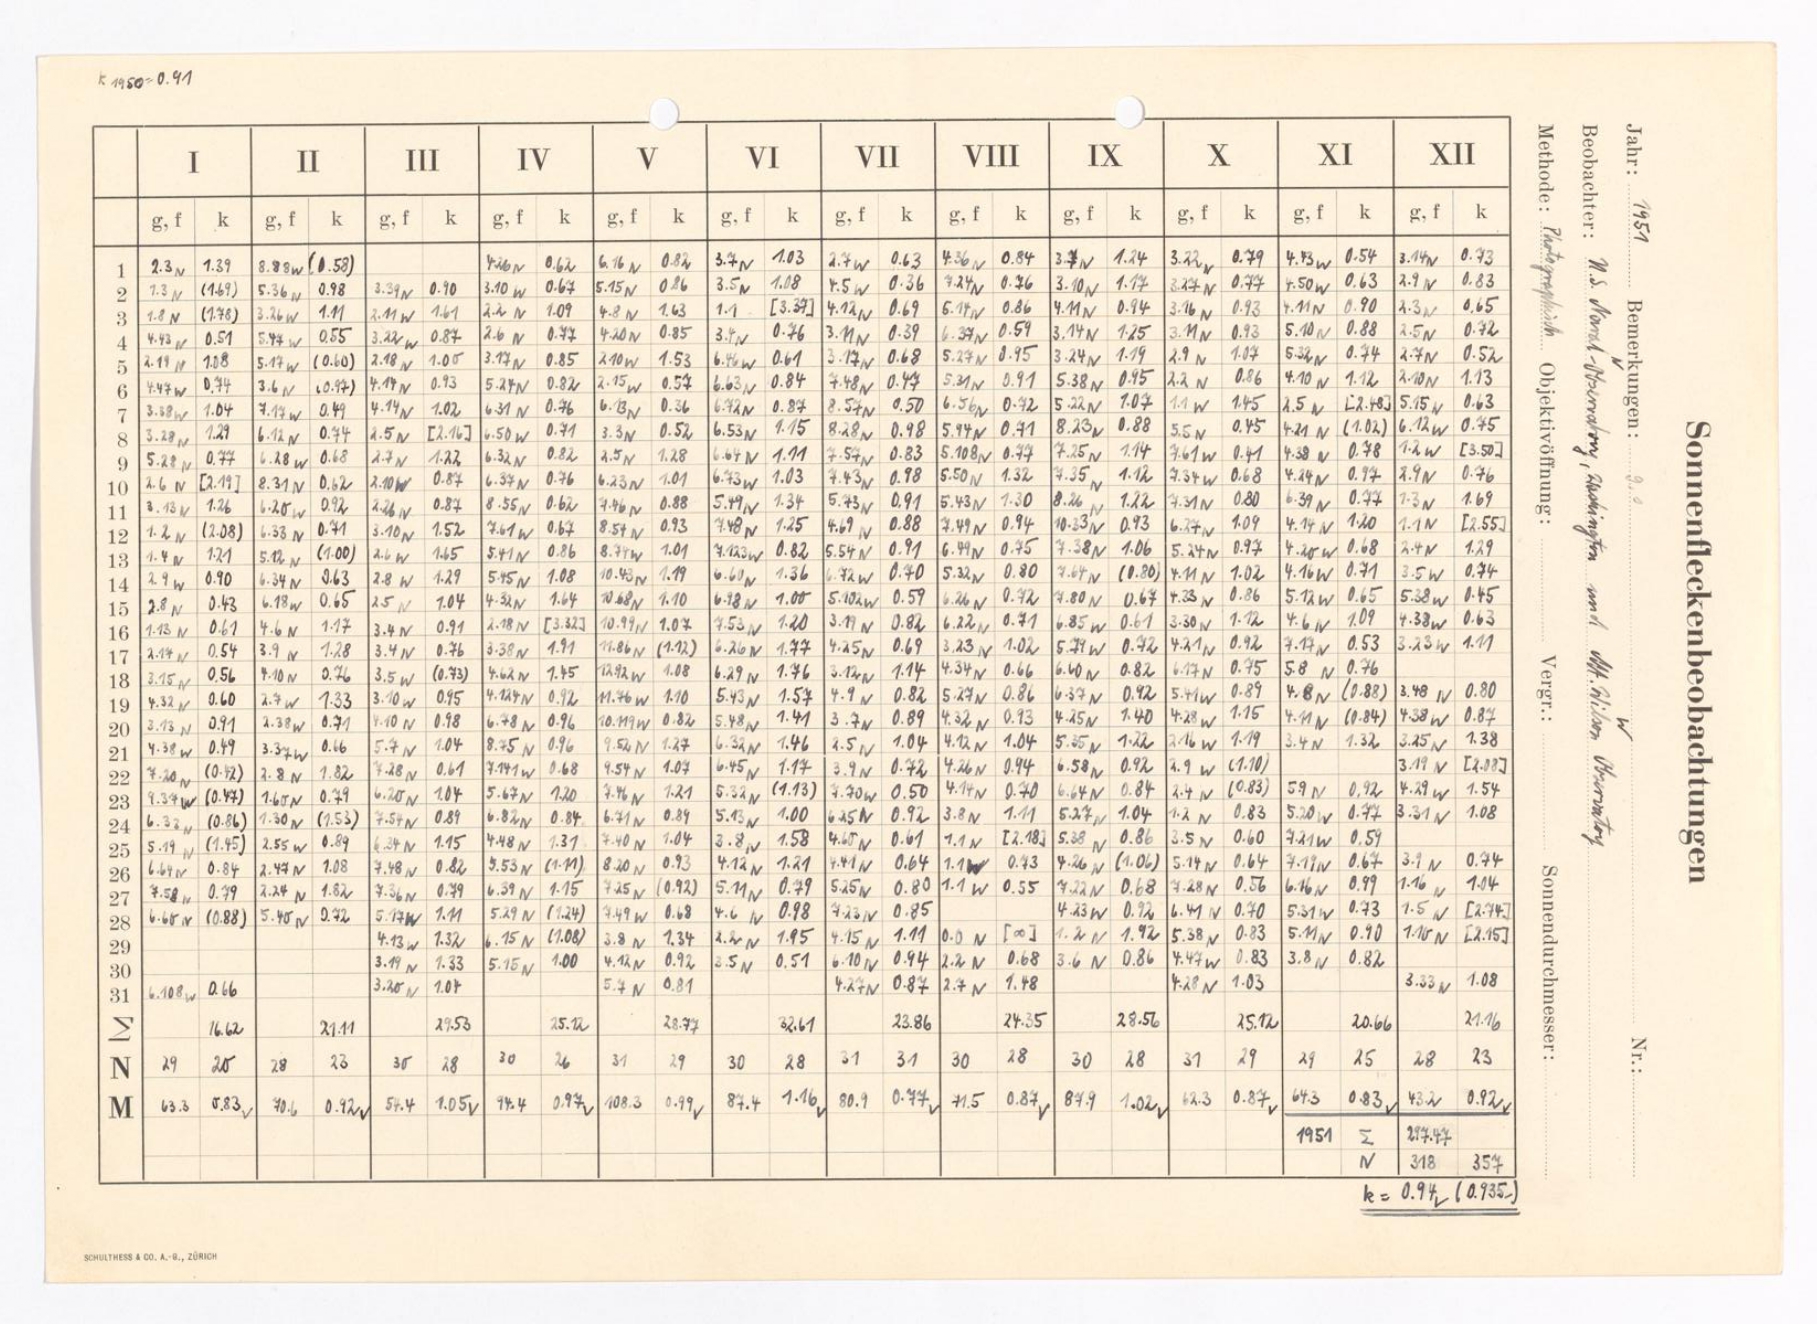 k 1950 = 0.91
I II III IV V VI VII VIII IX X XI XII
g, f k g, f k g, f k g, f k g, f k g, f k g, f k g, f k g, f k g, f k g, f k g, f k
1 2.3 N 1.39 8.88 W (0.58) 4.26 N 0.62 6.16 N 0.82 3.7 N 1.03 2.7 W 0.63 4.36 N 0.84 3.7 N 1.24 3.22 N 0.79 4.43 W 0.54 3.14 N 0.73
2 1.3 N (1.69) 5.36 N 0.98 3.39 N 0.90 3.10 W 0.67 5.15 N 0.86 3.5 N 1.08 4.5 W 0.36 7.24 N 0.76 3.10 N 1.17 3.27 N 0.77 4.50 W 0.63 2.9 N 0.83
3 1.8 N (1.78) 3.26 W 1.11 2.11 W 1.61 2.2 N 1.09 4.8 N 1.63 1.1 [3.37] 4.12 N 0.69 5.14 N 0.86 4.11 N 0.94 3.16 N 0.93 4.11 N 0.90 2.3 N 0.65
4 4.43 N 0.51 5.47 W 0.55 3.22 W 0.87 2.6 N 0.77 4.20 N 0.85 3.4 N 0.76 3.11 N 0.39 6.37 N 0.59 3.14 N 1.25 3.11 N 0.93 5.10 N 0.88 2.5 N 0.72
5 2.19 N 1.08 5.17 W (0.60) 2.18 N 1.00 3.17 N 0.85 2.10 W 1.53 6.46 W 0.61 3.17 N 0.68 5.27 N 0.95 3.24 N 1.19 2.9 N 1.07 5.32 N 0.74 2.7 N 0.52
6 4.47 W 0.74 3.6 N (0.97) 4.14 N 0.93 5.24 N 0.82 2.15 W 0.57 6.63 N 0.84 7.48 N 0.47 5.31 N 0.91 5.38 N 0.95 2.2 N 0.86 4.10 N 1.12 2.10 N 1.13
7 3.38 W 1.04 7.17 W 0.49 4.14 N 1.02 6.31 N 0.76 6.13 N 0.36 6.72 N 0.87 8.57 N 0.50 6.56 N 0.72 5.22 N 1.07 1.1 W 1.45 2.5 N [2.48] 5.15 N 0.63
8 3.28 N 1.29 6.12 N 0.74 2.5 N [2.16] 6.50 W 0.71 3.3 N 0.52 6.53 N 1.15 8.28 N 0.98 5.94 N 0.71 8.23 N 0.88 5.5 N 0.45 4.21 N (1.02) 6.12 W 0.75
9 5.28 N 0.77 6.28 W 0.68 2.7 N 1.22 6.32 N 0.82 2.5 N 1.28 6.64 N 1.11 7.57 N 0.83 5.108 N 0.77 7.25 N 1.14 7.61 W 0.41 4.38 N 0.78 1.2 W [3.50]
10 2.6 N [2.19] 8.31 N 0.62 2.10 W 0.87 6.37 N 0.76 6.23 N 1.01 6.73 W 1.03 7.43 N 0.98 5.50 N 1.32 7.35 N 1.12 7.34 W 0.68 4.24 N 0.97 2.9 N 0.76
11 3.13 N 1.26 6.20 W 0.92 2.26 N 0.87 8.55 N 0.62 7.46 N 0.88 5.49 N 1.34 5.73 N 0.91 5.43 N 1.30 8.26 N 1.22 7.31 N 0.80 6.39 N 0.77 1.3 N 1.69
12 1.2 N (2.08) 6.33 N 0.71 3.10 N 1.52 7.61 W 0.67 8.54 N 0.93 7.48 N 1.25 4.69 N 0.88 7.49 N 0.94 10.33 N 0.93 6.27 N 1.09 4.14 N 1.20 1.1 N [2.55]
13 1.4 N 1.21 5.12 N (1.00) 2.6 W 1.65 5.41 N 0.86 8.74 W 1.01 7.123 W 0.82 5.54 N 0.91 6.49 N 0.75 7.38 N 1.06 5.24 N 0.97 4.20 W 0.68 2.4 N 1.29
14 2.9 W 0.90 6.34 N 0.63 2.8 W 1.29 5.45 N 1.08 10.43 N 1.19 6.60 N 1.36 6.72 W 0.70 5.32 N 0.80 7.64 N (0.80) 4.11 N 1.02 4.16 W 0.71 3.5 W 0.74
15 2.8 N 0.43 6.18 W 0.65 2.5 N 1.04 4.32 N 1.64 10.68 N 1.10 6.98 N 1.00 5.102 W 0.59 6.26 N 0.72 7.80 N 0.67 4.33 N 0.86 5.12 W 0.65 5.38 W 0.45
16 1.13 N 0.61 4.6 N 1.17 3.4 N 0.91 2.18 N [3.32] 10.99 N 1.07 7.53 N 1.20 3.19 N 0.82 6.22 N 0.71 6.85 W 0.61 3.30 N 1.12 4.6 N 1.09 4.38 W 0.63
17 2.14 N 0.54 3.9 N 1.28 3.4 N 0.76 3.38 N 1.91 11.86 N (1.12) 6.26 N 1.77 4.25 N 0.69 3.23 N 1.02 5.79 W 0.72 4.21 N 0.92 7.17 N 0.53 3.23 W 1.11
18 3.15 N 0.56 4.10 N 0.76 3.5 W (0.73) 4.62 N 1.45 12.92 W 1.08 6.29 N 1.76 3.12 N 1.14 4.34 N 0.66 6.60 N 0.82 6.17 N 0.75 5.8 N 0.76
19 4.32 N 0.60 2.7 W 1.33 3.10 W 0.95 4.124 N 0.92 11.76 W 1.10 5.43 N 1.57 4.9 N 0.82 5.27 N 0.86 6.37 N 0.92 5.41 W 0.89 4.8 N (0.88) 3.48 N 0.80
20 3.13 N 0.91 2.38 W 0.71 4.10 N 0.98 6.78 N 0.96 10.119 W 0.82 5.48 N 1.41 3.7 N 0.89 4.32 N 0.93 4.25 N 1.40 4.28 W 1.15 4.11 N (0.84) 4.38 W 0.87
21 4.38 W 0.49 3.37 W 0.66 5.7 N 1.04 8.75 N 0.96 9.52 N 1.27 6.32 N 1.46 2.5 N 1.04 4.12 N 1.04 5.35 N 1.22 2.16 W 1.19 3.4 N 1.32 3.25 N 1.38
22 7.20 N (0.42) 2.8 N 1.82 7.28 N 0.61 7.141 W 0.68 9.54 N 1.07 6.45 N 1.17 3.9 N 0.72 4.26 N 0.94 6.58 N 0.92 2.9 W (1.10) 3.19 N [2.08]
23 9.37 W (0.47) 1.60 N 0.79 6.20 N 1.04 5.67 N 1.20 7.76 N 1.21 5.32 N (1.13) 7.70 W 0.50 4.14 N 0.70 6.64 N 0.84 2.4 N (0.83) 5.9 N 0.92 4.29 W 1.54
24 6.33 N (0.86) 1.30 N (1.53) 7.54 N 0.89 6.82 N 0.84 6.71 N 0.89 5.13 N 1.00 6.25 N 0.92 3.8 N 1.11 5.27 N 1.04 1.2 N 0.83 5.20 W 0.77 3.31 N 1.08
25 5.19 N (1.45) 2.55 W 0.89 6.34 N 1.15 4.48 N 1.31 7.40 N 1.04 3.8 N 1.58 4.60 N 0.61 1.1 N [2.18] 5.38 N 0.86 3.5 N 0.60 7.21 W 0.59
26 6.64 N 0.84 2.47 N 1.08 7.48 N 0.82 5.53 N (1.11) 8.20 N 0.93 4.12 N 1.21 4.41 N 0.64 1.1 W 0.73 4.26 N (1.06) 5.14 N 0.64 7.19 N 0.67 3.9 N 0.74
27 7.58 N 0.79 2.24 N 1.82 7.36 N 0.79 6.39 N 1.15 7.25 N (0.92) 5.11 N 0.79 5.25 N 0.80 1.1 W 0.55 7.22 N 0.68 7.28 N 0.56 6.16 N 0.99 1.16 N 1.04
28 6.60 N (0.88) 5.40 N 0.72 5.17 W 1.11 5.29 N (1.24) 7.49 W 0.68 4.6 N 0.98 7.23 N 0.85 4.23 W 0.92 6.41 N 0.70 5.31 W 0.73 1.5 N [2.74]
29 4.13 W 1.32 6.15 N (1.08) 3.8 N 1.34 2.2 N 1.95 4.15 N 1.11 0.0 N [∞] 1.2 N 1.92 5.38 N 0.83 5.11 N 0.90 1.10 N [2.15]
30 3.19 N 1.33 5.15 N 1.00 4.12 N 0.92 3.5 N 0.51 6.10 N 0.94 2.2 N 0.68 3.6 N 0.86 4.47 W 0.83 3.8 N 0.82
31 6.108 W 0.66 3.20 N 1.04 5.7 N 0.81 4.27 N 0.87 2.7 N 1.48 4.28 N 1.03 3.33 N 1.08
Σ 16.62 21.11 29.53 25.12 28.77 32.61 23.86 24.35 28.56 25.12 20.66 21.16
N 29 20 28 23 30 28 30 26 31 29 30 28 31 31 30 28 30 28 31 29 29 25 28 23
M 63.3 0.83 70.6 0.92 54.4 1.05 94.4 0.97 108.3 0.99 87.4 1.16 80.9 0.77 71.5 0.87 87.9 1.02 62.3 0.87 64.3 0.83 43.2 0.92
1951 Σ 297.47
N 318 357
k = 0.94 (0.935-)
SCHULTHESS & CO. A.-G., ZÜRICH
Sonnenfleckenbeobachtungen
Jahr: 1951 Bemerkungen: Nr.:
Beobachter: U.S. Naval-Observatory, Washington und Mt. Wilson Observatory
N W
Methode: Photographisch Objektivöffnung: Vergr.: Sonnendurchmesser: